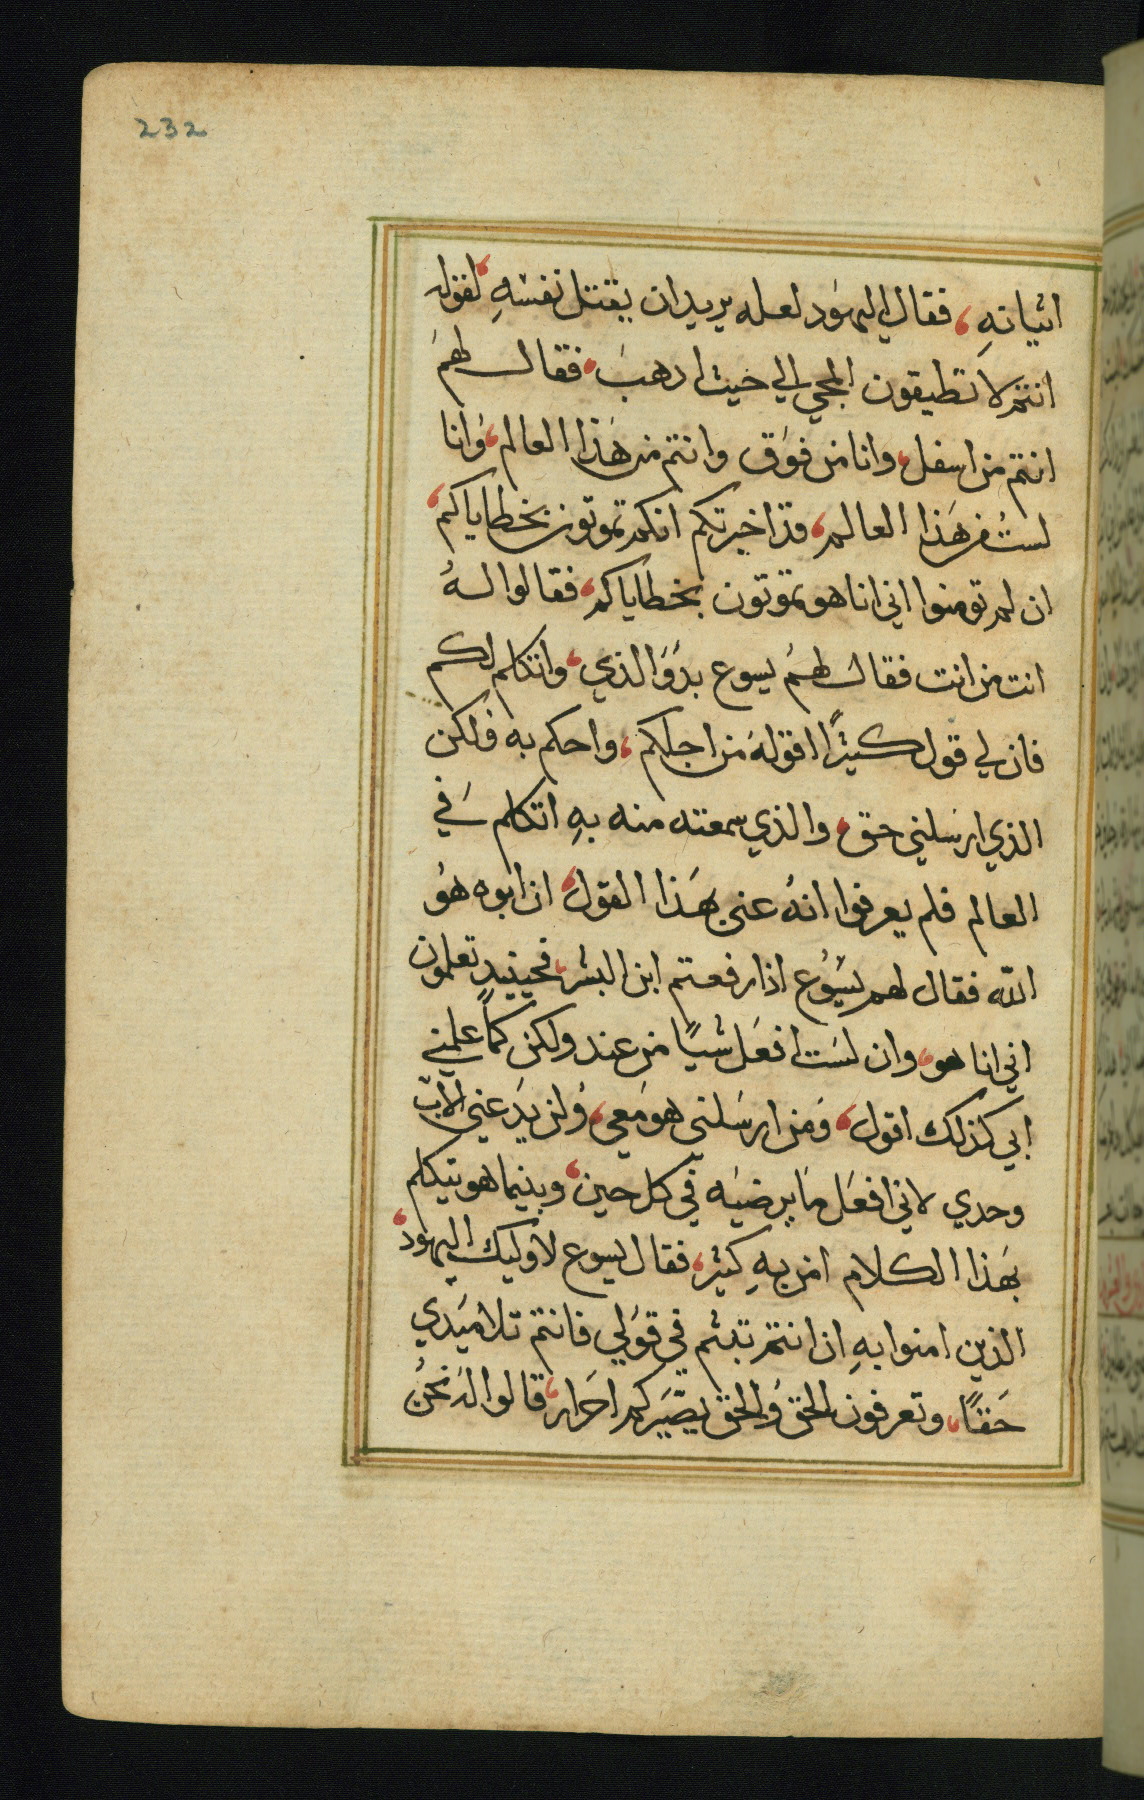 232
اتيانهِ، فقال اليهود لعله يريد ان يقتل نفسهِ، لقوله
انتم لا تطيقون المجي الى حيث اذهب، فقال لهم
انتم من اسفل، وانا من فوق وانتم من هذا العالم، وانا
لست من هذا العالم، قد اخبرتكم انكم تموتون بخطاياكم،
ان لم تومنوا اني انا هو تموتون بخطاياكم، فقالوا له
انت من انت فقال لهم يسوع بدو الذي، واتكلم لكم
فان لي قول كثيرًا اقوله من اجلكم، واحكم به فلكن
الذي ارسلني حق، والذي سمعته منه بهِ اتكلم في
العالم فلم يعرفوا انه عنى بهذا القول، ان ابوه هو
الله فقال لهم يسوع اذا رفعتم ابن البشر، فحينيدٍ تعلمون
اني انا هو، وان لست افعل شيًا من عند ولكن كما علمني
ابي كذلك اقول، ومن ارسلني هو معي، ولن يدعني الاب
وحدي لاني افعل ما يرضيه في كل حين، وبينما هو يتكلم
بهذا الكلام امن بهِ كثير، فقال يسوع لاوليك اليهود،
الذين امنوا بهِ ان انتم تبثم في قولي فانتم تلاميدي
حقًا، وتعرفون الحق والحق يصيركم احرار، قالوا له نحن